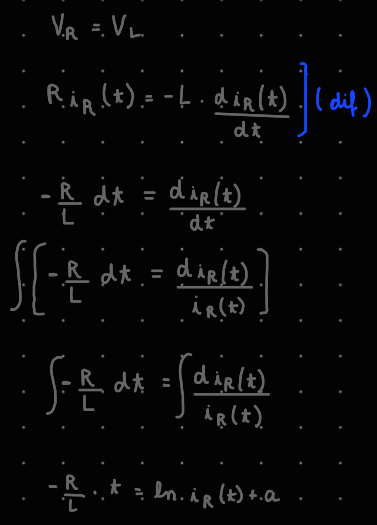 V_R = V_L
R i_R(t) = -L · d i_R(t)/dt ] (dif)
-R/L dt = d i_R(t)/dt
∫[-R/L dt = d i_R(t)/i_R(t)]
∫-R/L dt = ∫d i_R(t)/i_R(t)
-R/L · t = ln · i_R(t) + a